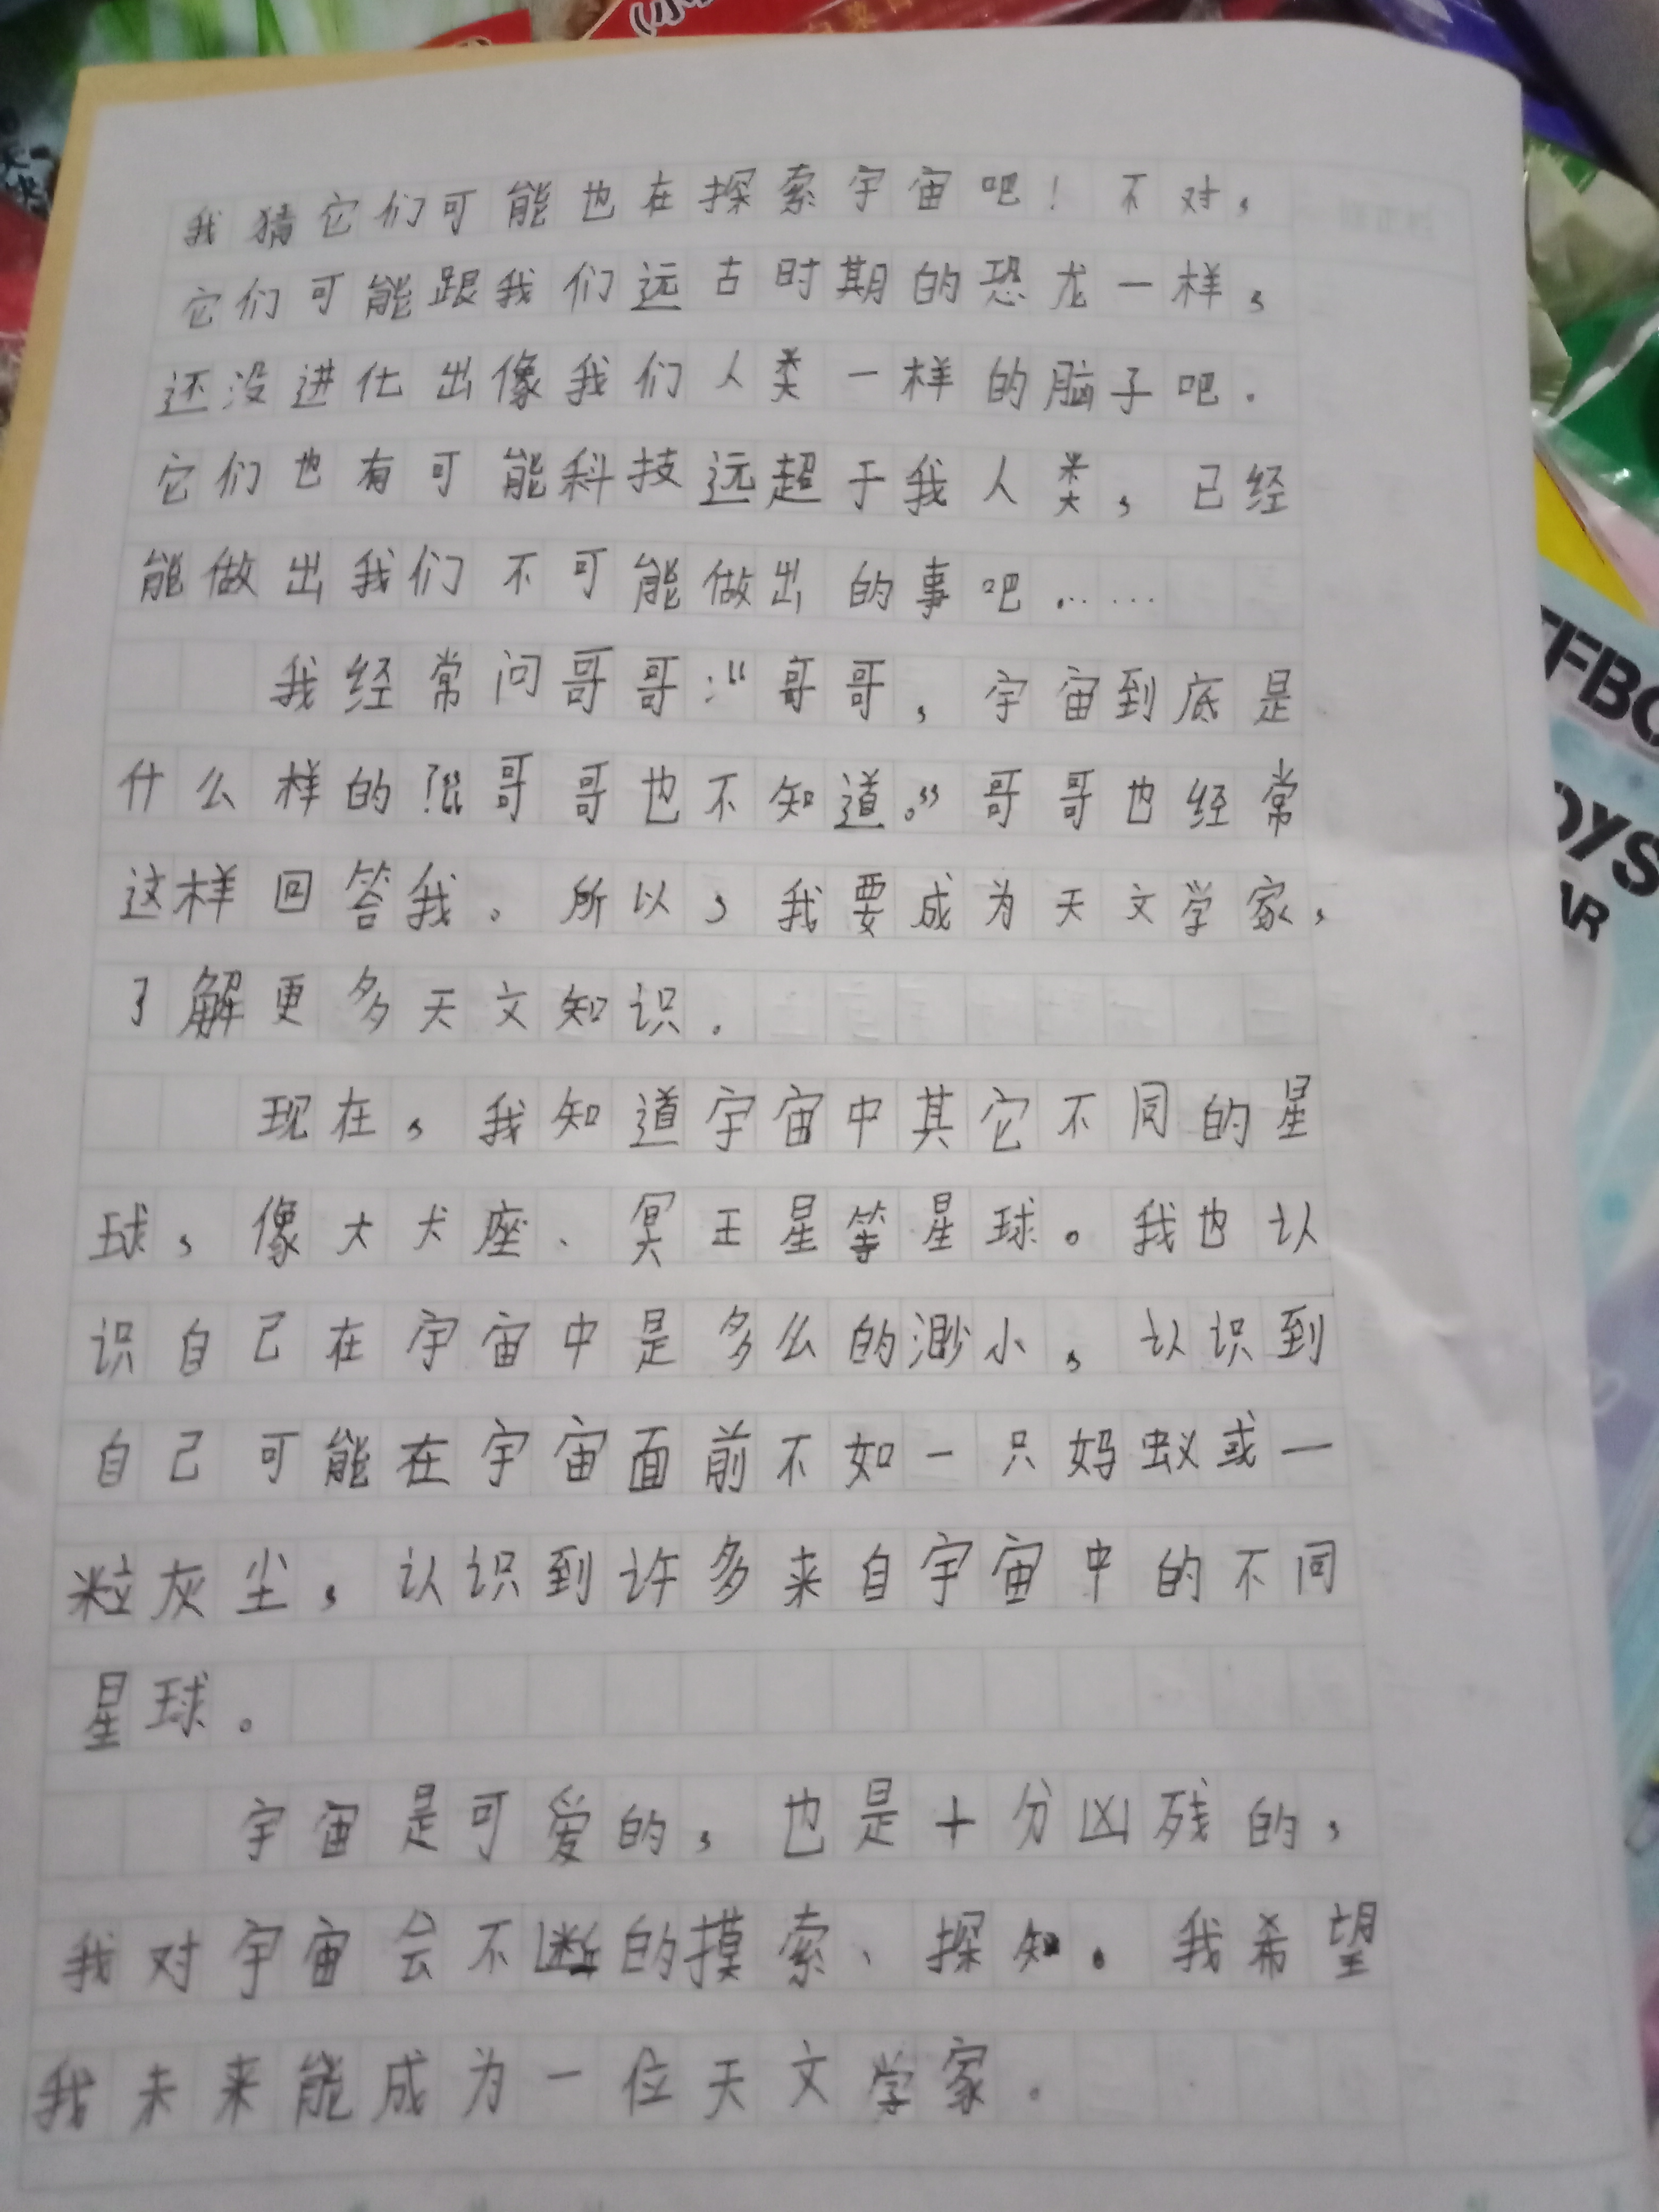 我猜它们可能也在探索宇宙吧！不对，
它们可能跟我们远古时期的恐龙一样，
还没进化出像我们人类一样的脑子吧.
它们也有可能科技远超于我人类，已经
能做出我们不可能做出的事吧……
我经常问哥哥：“哥哥，宇宙到底是
什么样的？”“哥哥也不知道。”哥哥也经常
这样回答我。所以，我要成为天文学家，
了解更多天文知识。
现在，我知道宇宙中其它不同的星
球，像大犬座、冥王星等星球。我也认
识自己在宇宙中是多么的渺小，认识到
自己可能在宇宙面前不如一只妈蚁或一
粒灰尘，认识到许多来自宇宙中的不同
星球。
宇宙是可爱的，也是十分凶残的，
我对宇宙会不断的摸索、探知。我希望
我未来能成为一位天文学家。
TFBO
OYS
AR